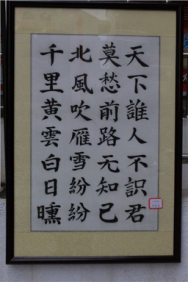 天下誰人不識君
莫愁前路无知己
北風吹雁雪紛紛
千里黄雲白日曛